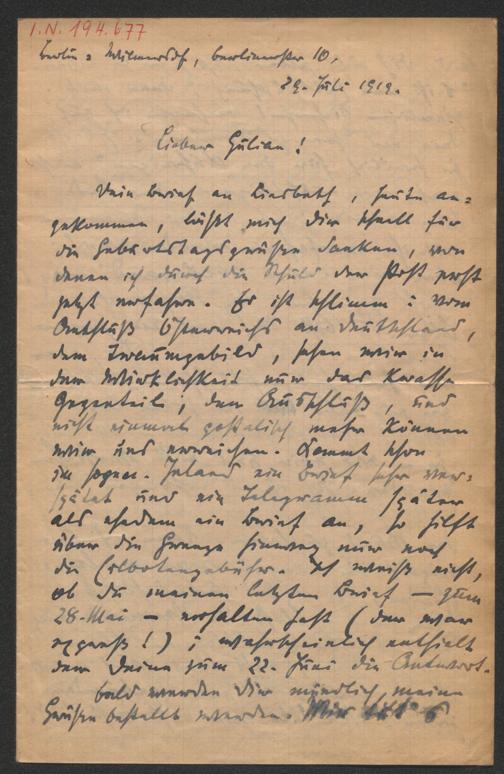 I.N. 194.677
Berlin-Wilmersdf, Berlinerstr 10.
29. Juli 1919.
Lieber Gülian!
Dein Brief an Liesbeth, heute an-
gekommen, läßt mich Dir schnell für
die Geburtstagsgrüße danken, von
denen ich durch die Schuld der Post erst
jetzt erfahre. Es ist schlimm: vom
Anschluß Österreichs an Deutschland,
dem Traumgebild, sehen wir in
der Wirklichkeit nur das krasse
Gegenteil, den Ausschluß, und
nicht einmal postalisch mehr können
wir uns erreichen. Kommt schon
im sogen. Inland ein Brief sehr ver-
spätet und ein Telegramm später
als ehedem ein Brief an, so hilft
über die Grenze hinweg nur noch
die Eilbotengebühr. Ich weiß nicht,
ob du meinen letzten Brief – zum
28. Mai – erhalten hast (der war
express!); wahrscheinlich enthielt
der Deine zum 22. Juni die Antwort.
Bald werden Dir mündlich meine
Grüße bestellt werden. Wir